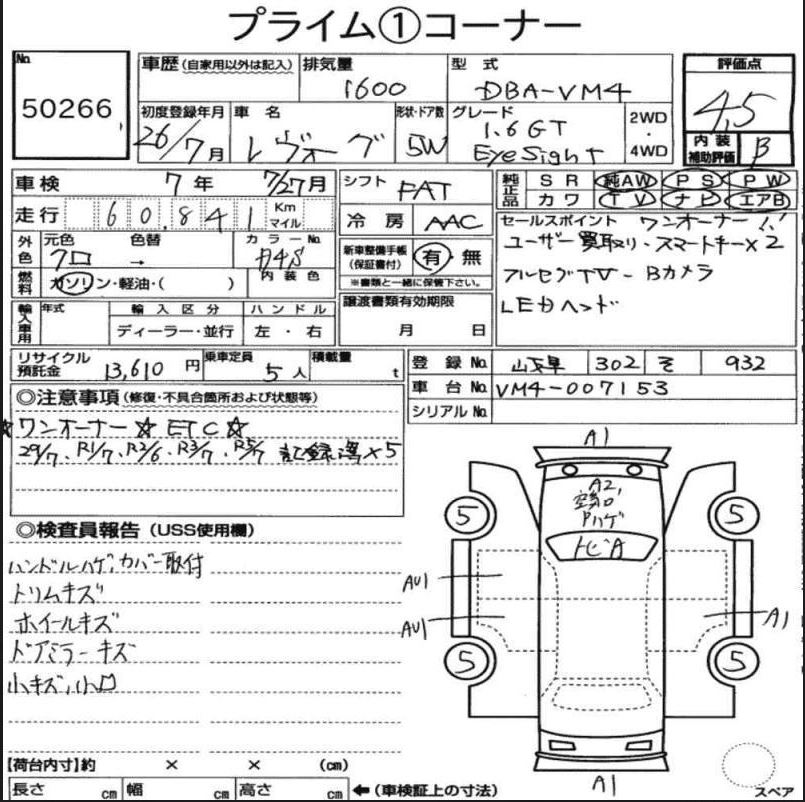 プライム①コーナー
No. 50266
車歴 (自家用以外は記入)
排気量 1600
型式 DBA-VM4
評価点 4.5
内装補助評価 B
初度登録年月 26/7月
車名 レヴォーグ
形状・ドア数 5W
グレード 1.6GT EyeSight
2WD ・ 4WD
車検 7年 7/27月
走行 60,841 Km マイル
シフト FAT
冷房 AAC
純正品 SR 純AW PS PW
カワ TV ナビ エアB
外色 元色 クロ 色替 → カラーNo. D4S
燃料 ガソリン・軽油・( ) 内装色
新車整備手帳 (保証書付) 有・無
※書類と一緒に保管下さい。
セールスポイント ワンオーナー!!
ユーザー買取り・スマートキー×2
フルセグTV・Bカメラ
LEDヘッド
輸入車用 年式 輸入区分 ハンドル
ディーラー・並行 左・右
譲渡書類有効期限
月 日
リサイクル預託金 13,610円 乗車定員 5人 積載量 t
登録No. 302 そ 932
車台No. VM4-007153
シリアルNo.
◎注意事項 (修復・不具合箇所および状態等)
☆ワンオーナー☆ETC☆
29/7、R1/7、R2/6、R3/7、R5/7 記録簿×5
◎検査員報告 (USS使用欄)
ハンドルハゲ、カバー取付
トリムキズ
ホイールキズ
ドアミラーキズ
小キズ、小凹
A1
A2,
Pハゲ
トビA
5
5
AU1
AU1
A1
5
5
A1
スペア
【荷台内寸】約 × × (cm)
長さ cm 幅 cm 高さ cm ←(車検証上の寸法)